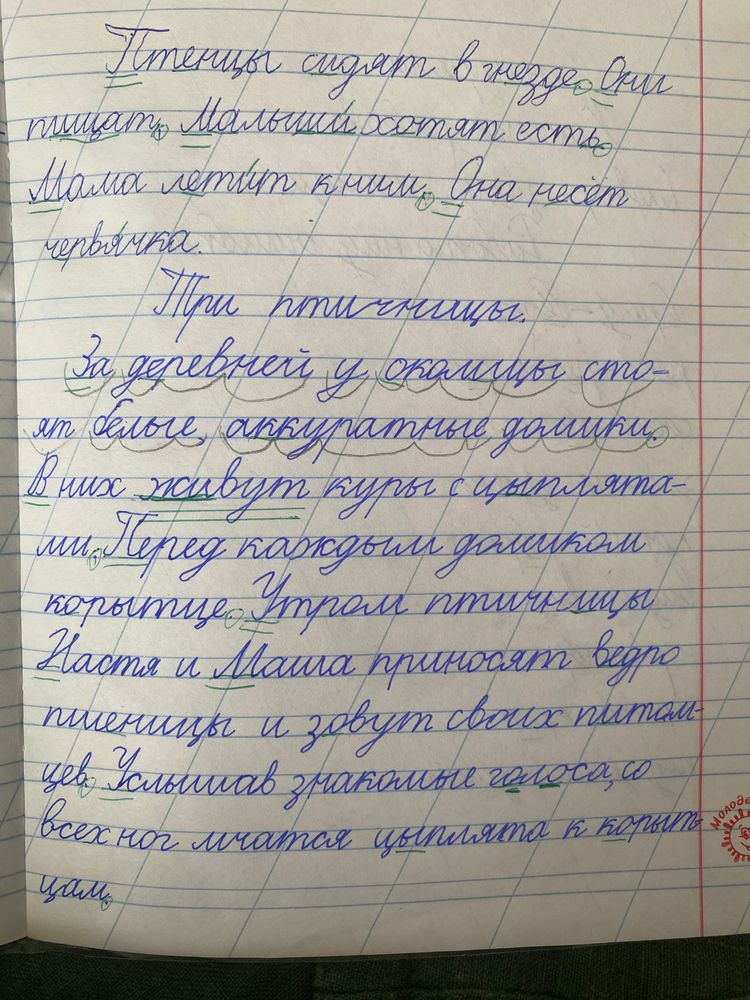 Птенцы сидят в гнезде. Они
пищат. Малыши хотят есть.
Мама летит к ним. Она несёт
червячка.
Три птичницы.
За деревней у околицы сто-
ят белые, аккуратные домики.
В них живут куры с цыплята-
ми. Перед каждым домиком
корытце. Утром птичницы
Настя и Маша приносят ведро
пшеницы и зовут своих питом-
цев. Услышав знакомые голоса, со
всех ног мчатся цыплята к корыт-
цам.